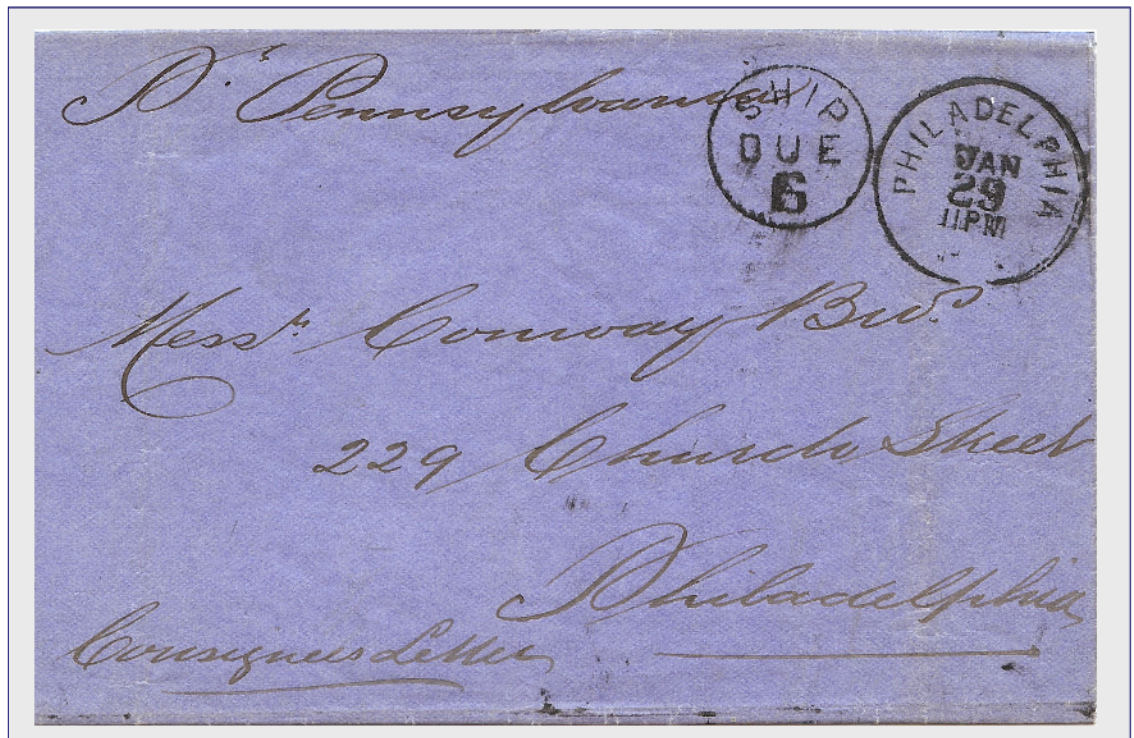 Pr Pennsylvania
SHIP
DUE
6
PHILADELPHIA
JAN
29
11PM
Messrs Conway Bros.
229 Church Street
Philadelphia
Consignees Letter